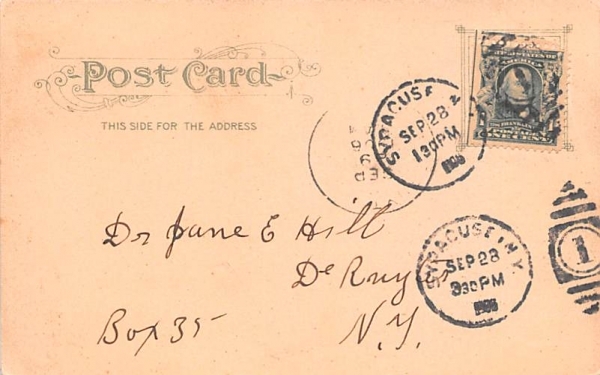 Post Card
THIS SIDE FOR THE ADDRESS
SYRACUSE
SEP 28
130PM
SYRACUSE N.Y.
SEP 28
330PM
1
Dr Jane E Hill
De Ruyter
Box 35
N.Y.